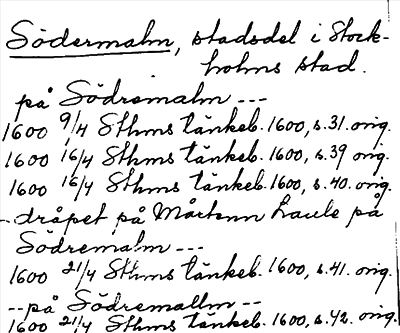 Södermalm, stadsdel i Stock-
holms stad.
på Södremalm ---
1600 9/4 Sthms tänkeb. 1600, s.31. orig.
1600 16/4 Sthms tänkeb. 1600, s.39 orig.
1600 16/4 Sthms tänkeb. 1600, s.40. orig.
-- dråpet på Mårtenn Laule på
Södremalm ---
1600 21/4 Sthms tänkeb. 1600, s.41. orig.
-- på Södremallm --
1600 21/4 Sthms tänkeb. 1600, s.42. orig.